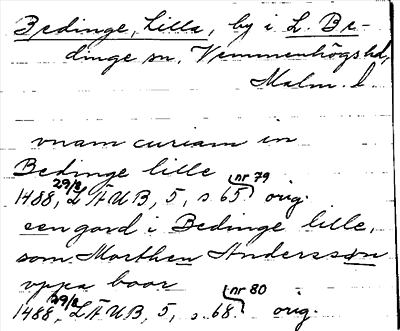 Bedinge, Lilla, by i L. Be-
dinge sn, Vemmenhögs hd,
Malm. l.
vnam curiam in
Bedinge lille
1488, 29/8, LÄUB, 5, s 65 (nr 79) orig.
een gord i Bedinge lille,
som Morthen Andersson
vppa boor
1488, 29/8, LÄUB, 5, s. 68. (nr 80) orig.